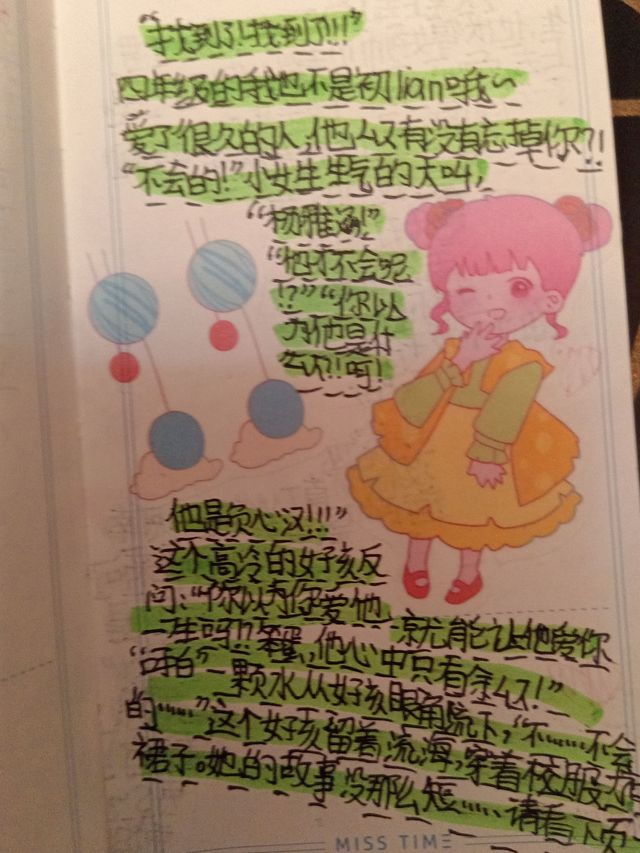 “找到了!找到了!!!”
四年级的我也不是初lian哦~
爱了很久的人,他么又有没有忘掉你?!
“不会的!”小女生里气的大叫,
“杨雅涵!”
“他才不会呢
!?”“你以
为他是什
么?!呵!
他是负心汉!!!”
这个高冷的女孩反
问:“你以为你爱他
一生吗!?笨蛋,他心中只有金么!”
就能让他爱你
“呵白”一颗水从女孩眼角流下,“不……不会
的……”这个女孩留着流海,穿着校服
裙子。她的故事没那么短……请看下页
MISS TIME